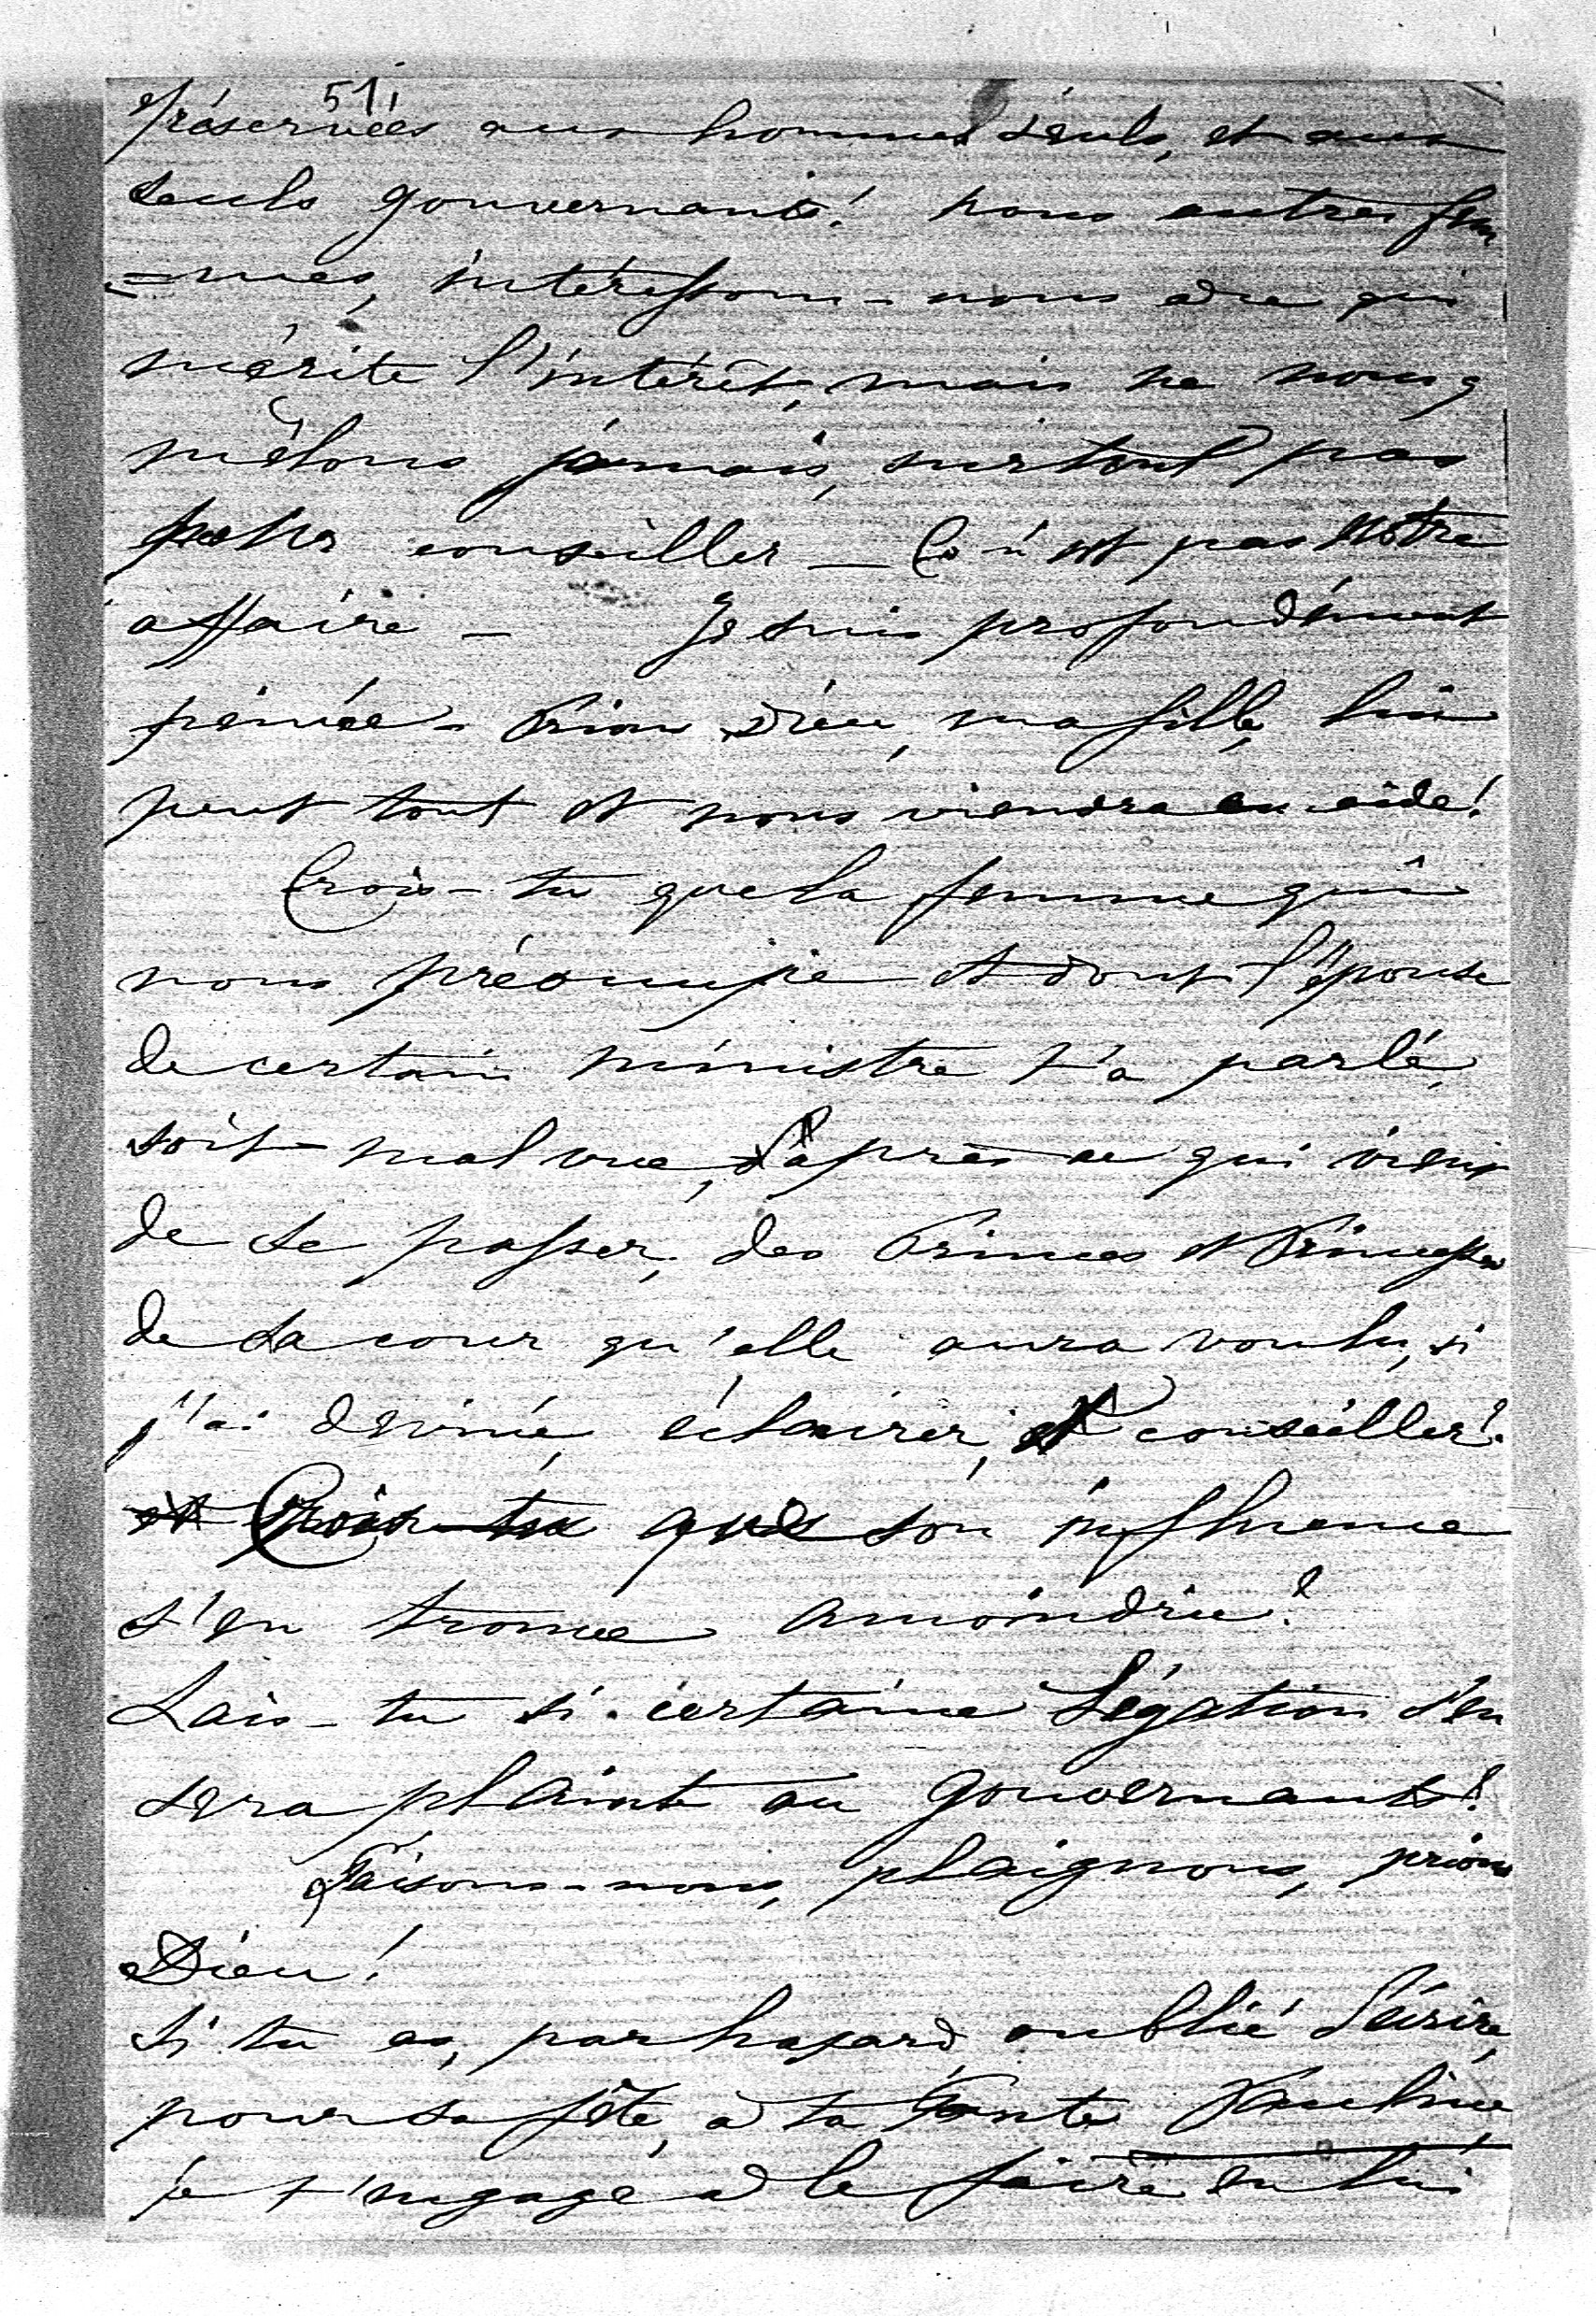 51,
réservées aux hommes seuls, et aux
seuls gouvernants! nous autres fem
=mes, intéressons-nous à ce qui
mérite l'intérêt, mais ne nous y
mêlons jamais, surtout pas
pour conseiller – Ce n'est pas notre
affaire – Je suis profondément
peinée – Prions Dieu, ma fille, Lui
peut tout et nous viendra en aide!
Crois-tu que la femme qui
nous préoccupe et dont l'épouse
de certain ministre t'a parlé,
soit mal vue, d'après ce qui vient
de se passer, des Princes et Princesses
de la cour qu'elle aura voulu, si
j'ai deviné, éclairer, et conseiller?
et Crois-tu que son influence
s'en trouve amoindrie?
Sais-tu si certaine Légation s'en
sera plainte au gouvernants?
Taisons-nous, plaignons, prions
Dieu!
Si tu as, par hasard oublié d'écrire,
pour sa fête, à ta tante Pauline
je t'engage à le faire en lui